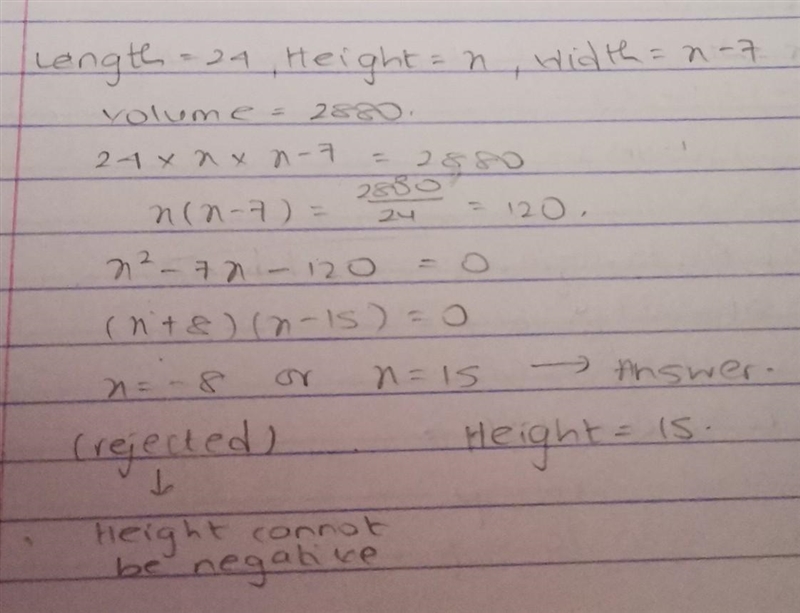 Length = 24, Height = x, width = x-7
volume = 2880.
24 × x × x-7 = 2880
x(x-7) = 2880/24 = 120.
x² - 7x - 120 = 0
(x+8)(x-15) = 0
x = -8 or x = 15 → Answer.
(rejected) Height = 15.
↓
Height cannot
be negative